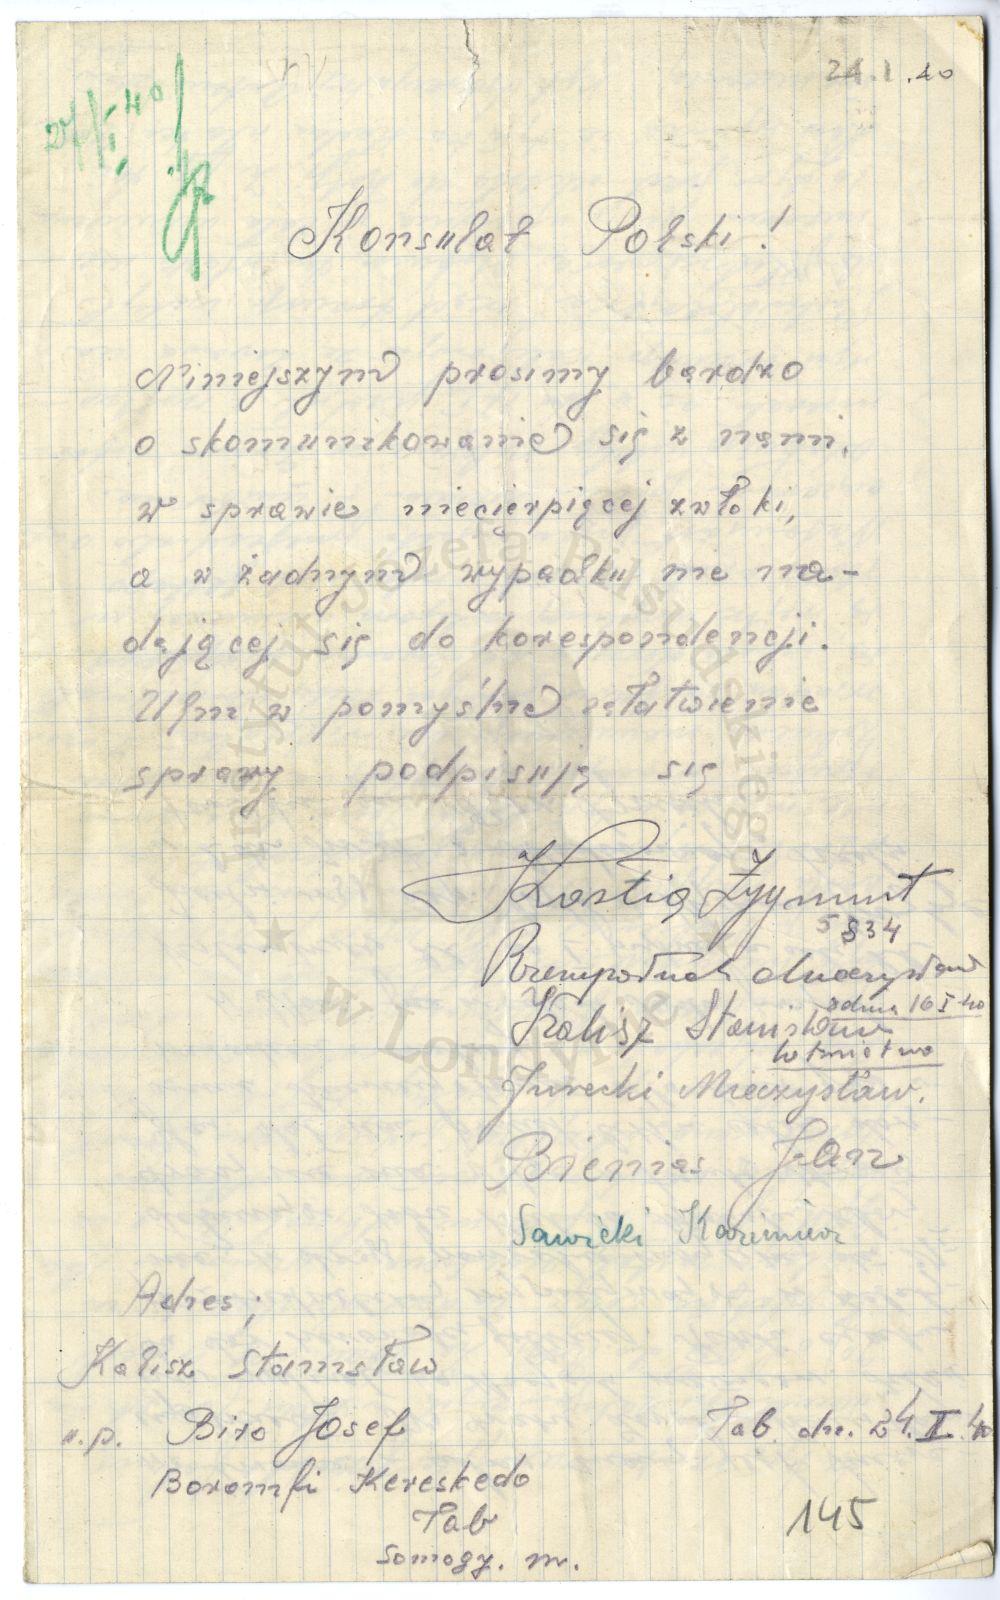 24.I.40
27/I.40
Konsulat Polski!
Niniejszym prosimy bardzo
o skomunikowanie się z nami,
w sprawie niecierpiącej zwłoki,
a w żadnym wypadku nie na-
dającej się do korespondencji.
Ufni w pomyślne załatwienie
sprawy podpisują się
Kostią Zygmunt
5834
Kalisz Stanisław
z dnia 16 I 40
lotnictwo
Jurecki Mieczysław.
Bienias Jan
Sawicki Kazimierz
Adres;
Kalisz Stanisław
u.p. Biro Josef
Boromfi Kereskedo
Tab
Somogy. m.
Tab dn. 24.I.40
145
Instytut Józefa Piłsudskiego
w Londynie